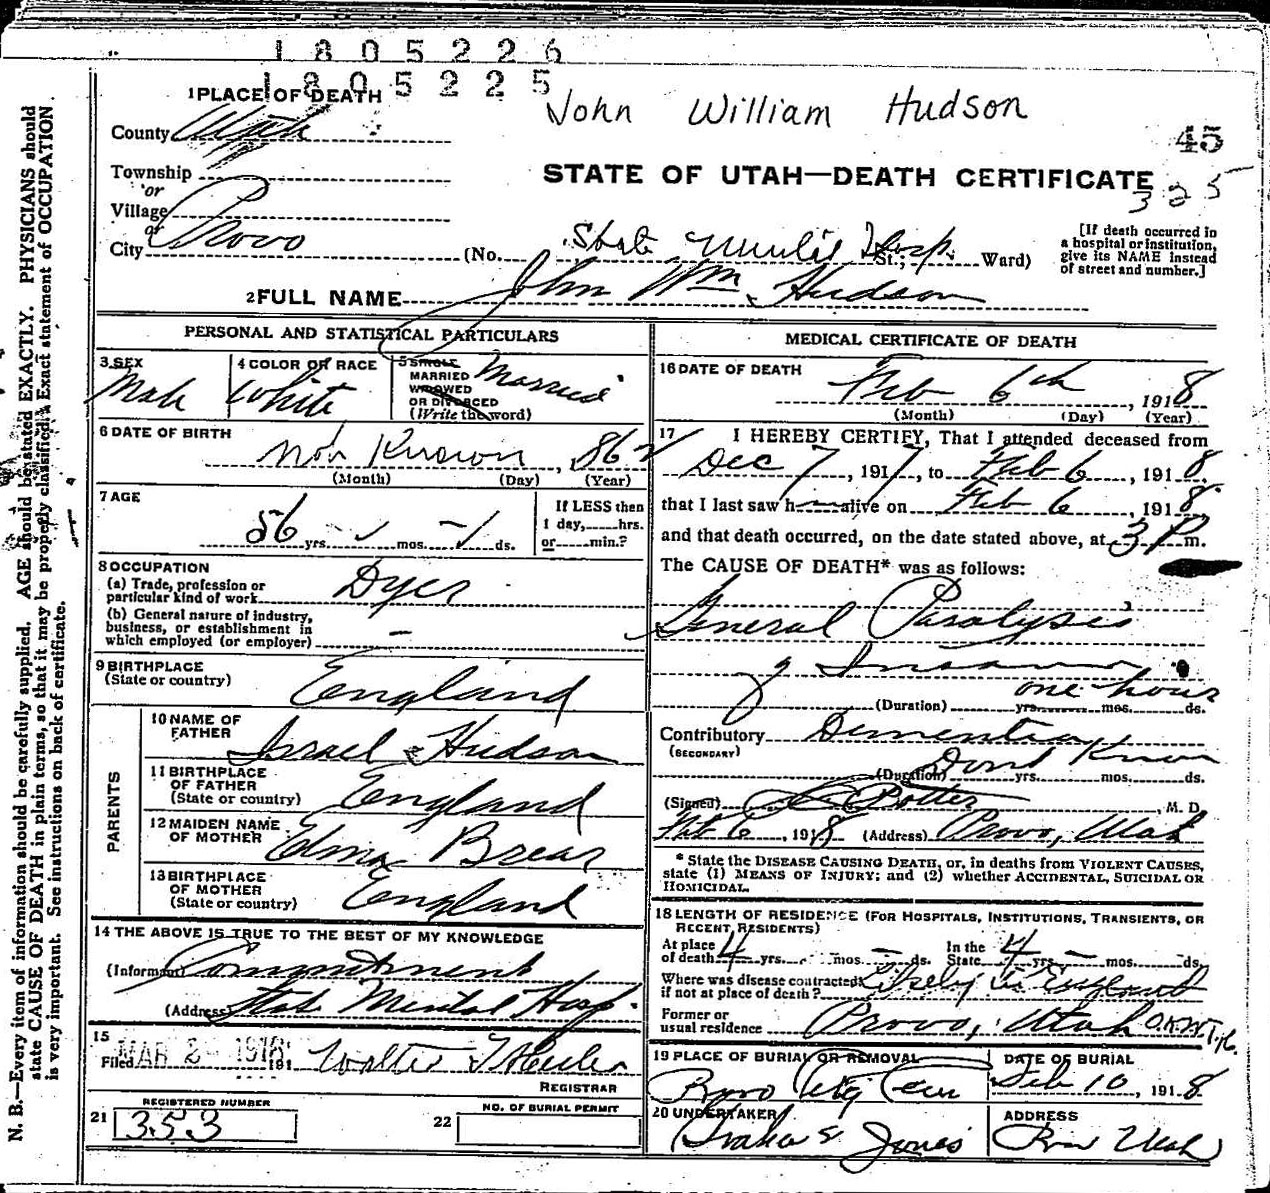 1805226
1805225
John William Hudson
45
325
1 PLACE OF DEATH
County Utah
Township
or
Village
or
City Provo
STATE OF UTAH—DEATH CERTIFICATE
(No. State Mental Hosp. St.; Ward)
[If death occurred in
a hospital or institution,
give its NAME instead
of street and number.]
2 FULL NAME John Wm Hudson
PERSONAL AND STATISTICAL PARTICULARS
3 SEX
Male
4 COLOR OR RACE
White
5 SINGLE
MARRIED
WIDOWED
OR DIVORCED
(Write the word)
Married
6 DATE OF BIRTH
Not Known, 1862
(Month) (Day) (Year)
7 AGE
56 yrs. mos. ds.
If LESS then
1 day, hrs.
or min.?
8 OCCUPATION
(a) Trade, profession or
particular kind of work Dyer
(b) General nature of industry,
business, or establishment in
which employed (or employer) –
9 BIRTHPLACE
(State or country) England
PARENTS
10 NAME OF
FATHER Israel Hudson
11 BIRTHPLACE
OF FATHER
(State or country) England
12 MAIDEN NAME
OF MOTHER Edna Brear
13 BIRTHPLACE
OF MOTHER
(State or country) England
14 THE ABOVE IS TRUE TO THE BEST OF MY KNOWLEDGE
(Informant) Commitment
(Address) State Mental Hosp.
15
Filed MAR 2 - 1918 191 Walter T
REGISTRAR
REGISTERED NUMBER
21 353
NO. OF BURIAL PERMIT
22
MEDICAL CERTIFICATE OF DEATH
16 DATE OF DEATH
Feb 6th, 1918
(Month) (Day) (Year)
17 I HEREBY CERTIFY, That I attended deceased from
Dec 7, 1917, to Feb 6, 1918.
that I last saw h alive on Feb 6, 1918
and that death occurred, on the date stated above, at 3 P m.
The CAUSE OF DEATH* was as follows:
General Paralysis
of Insane
one hour
(Duration) yrs. mos. ds.
Contributory Dementia
(SECONDARY)
(Duration) Dont Know yrs. mos. ds.
(Signed) Potter, M. D.
Feb 6, 1918 (Address) Provo, Utah
* State the DISEASE CAUSING DEATH, or, in deaths from VIOLENT CAUSES,
state (1) MEANS OF INJURY; and (2) whether ACCIDENTAL, SUICIDAL OR
HOMICIDAL.
18 LENGTH OF RESIDENCE (FOR HOSPITALS, INSTITUTIONS, TRANSIENTS, OR
RECENT RESIDENTS)
At place
of death 4 yrs. – mos. – ds.
In the
State 4 yrs. – mos. ds.
Where was disease contracted
if not at place of death? England
Former or
usual residence Provo, Utah
19 PLACE OF BURIAL OR REMOVAL
Provo City Cem
DATE OF BURIAL
Feb 10, 1918
20 UNDERTAKER
Jones
ADDRESS
Provo Utah
N. B.—Every item of information should be carefully supplied. AGE should be stated EXACTLY. PHYSICIANS should
state CAUSE OF DEATH in plain terms, so that it may be properly classified. Exact statement of OCCUPATION
is very important. See instructions on back of certificate.